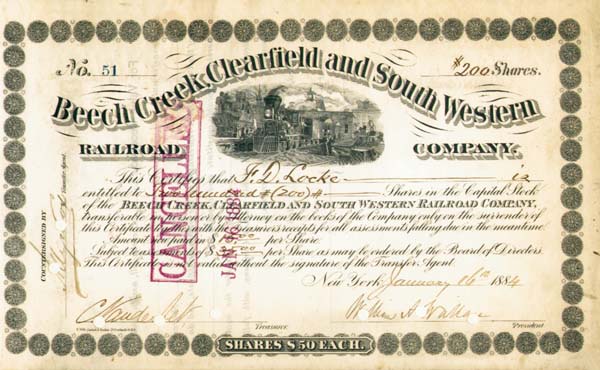 No. 51
$200 Shares.
Beech Creek, Clearfield and South Western
RAILROAD COMPANY.
This Certifies that F. D. Locke is
entitled to Two Hundred #(200)# Shares in the Capital Stock
of the BEECH CREEK, CLEARFIELD AND SOUTH WESTERN RAILROAD COMPANY,
transferable in person or by attorney on the books of the Company only on the surrender of
this Certificate together with the treasurers receipts for all assessments falling due in the meantime
Amount now paid in $ per Share.
Subject to assessment of $ per Share as may be ordered by the Board of Directors.
This Certificate is not valid without the signature of the Transfer Agent.
New York January 16th 1884
Treasurer.
William A Wallace
President
SHARES $50 EACH.
COUNTERSIGNED BY
Transfer Agent.
CANCELLED
JAN 16 1884